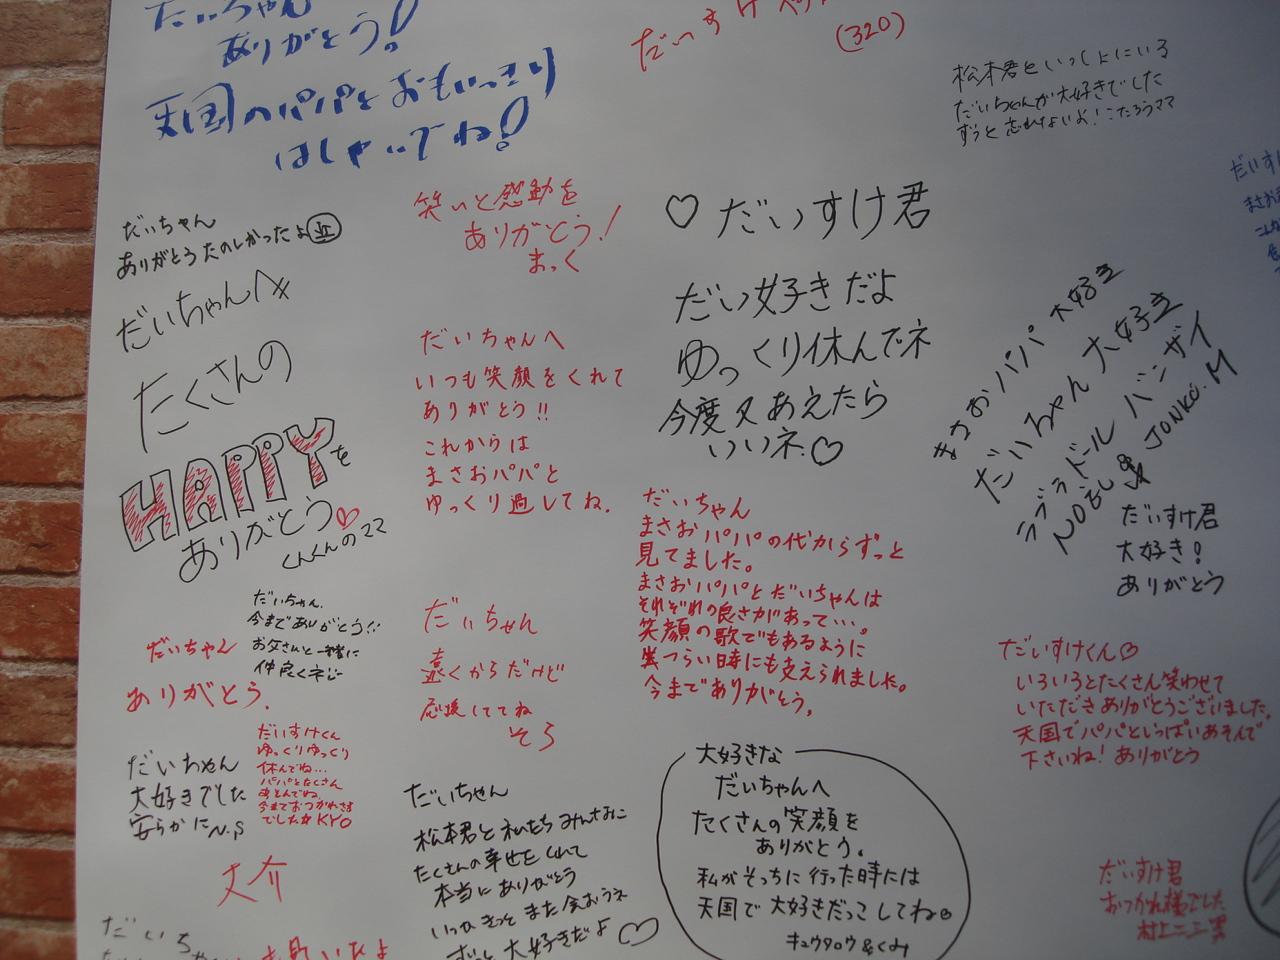 だいちゃん
ありがとう!
天国のパパとおもいっきり
はしゃいでね!
だいすけ
(320)
松本君といっしょにいる
だいちゃんが大好きでした
ずっと忘れないよ!こたろうママ
だいちゃん
ありがとうたのしかったよ
笑いと感動を
ありがとう!
まっく
♡だいすけ君
だい好きだよ
ゆっくり休んでネ
今度又あえたら
いいネ.♡
だいちゃんへ
たくさんの
HAPPYを
ありがとう♡
くんくんのママ
だいちゃんへ
いつも笑顔をくれて
ありがとう!!
これからは
まさおパパと
ゆっくり過してね.
まさおパパ 大好き
だいちゃん 大好き
ラブラドール バンザイ
NOEL & JUNKO.M
だいちゃん
まさおパパの代からずっと
見てました。
まさおパパとだいちゃんは
それぞれの良さがあって…。
笑顔の歌でもあるように
つらい時にも支えられました。
今までありがとう。
だいすけ君
大好き!
ありがとう
だいちゃん.
今までありがとう!!
お父さんと一緒に
仲良くネ
だいちゃん
ありがとう.
だいちゃん
遠くからだけど
応援しててね
そら
だいすけくん♡
いろいろとたくさん笑わせて
いただきありがとうございました.
天国でパパといっぱいあそんで
下さいね!ありがとう
だいすけくん
ゆっくりゆっくり
休んでね…
パパとたくさん
あそんでね.
今までおつかれさま
でした KYO
だいちゃん
大好きでした
安らかに N.S
だいちゃん
松本君と私たちみんなに
たくさんの幸せをくれて
本当にありがとう
いつかきっとまた会おうネ
ずっと大好きだよ♡
大好きな
だいちゃんへ
たくさんの笑顔を
ありがとう。
私がそっちに行った時には
天国で大好きだっこしてね。
キュウタロウ&くみ
大介
だいすけ君
おつかれ様でした
だいちゃ